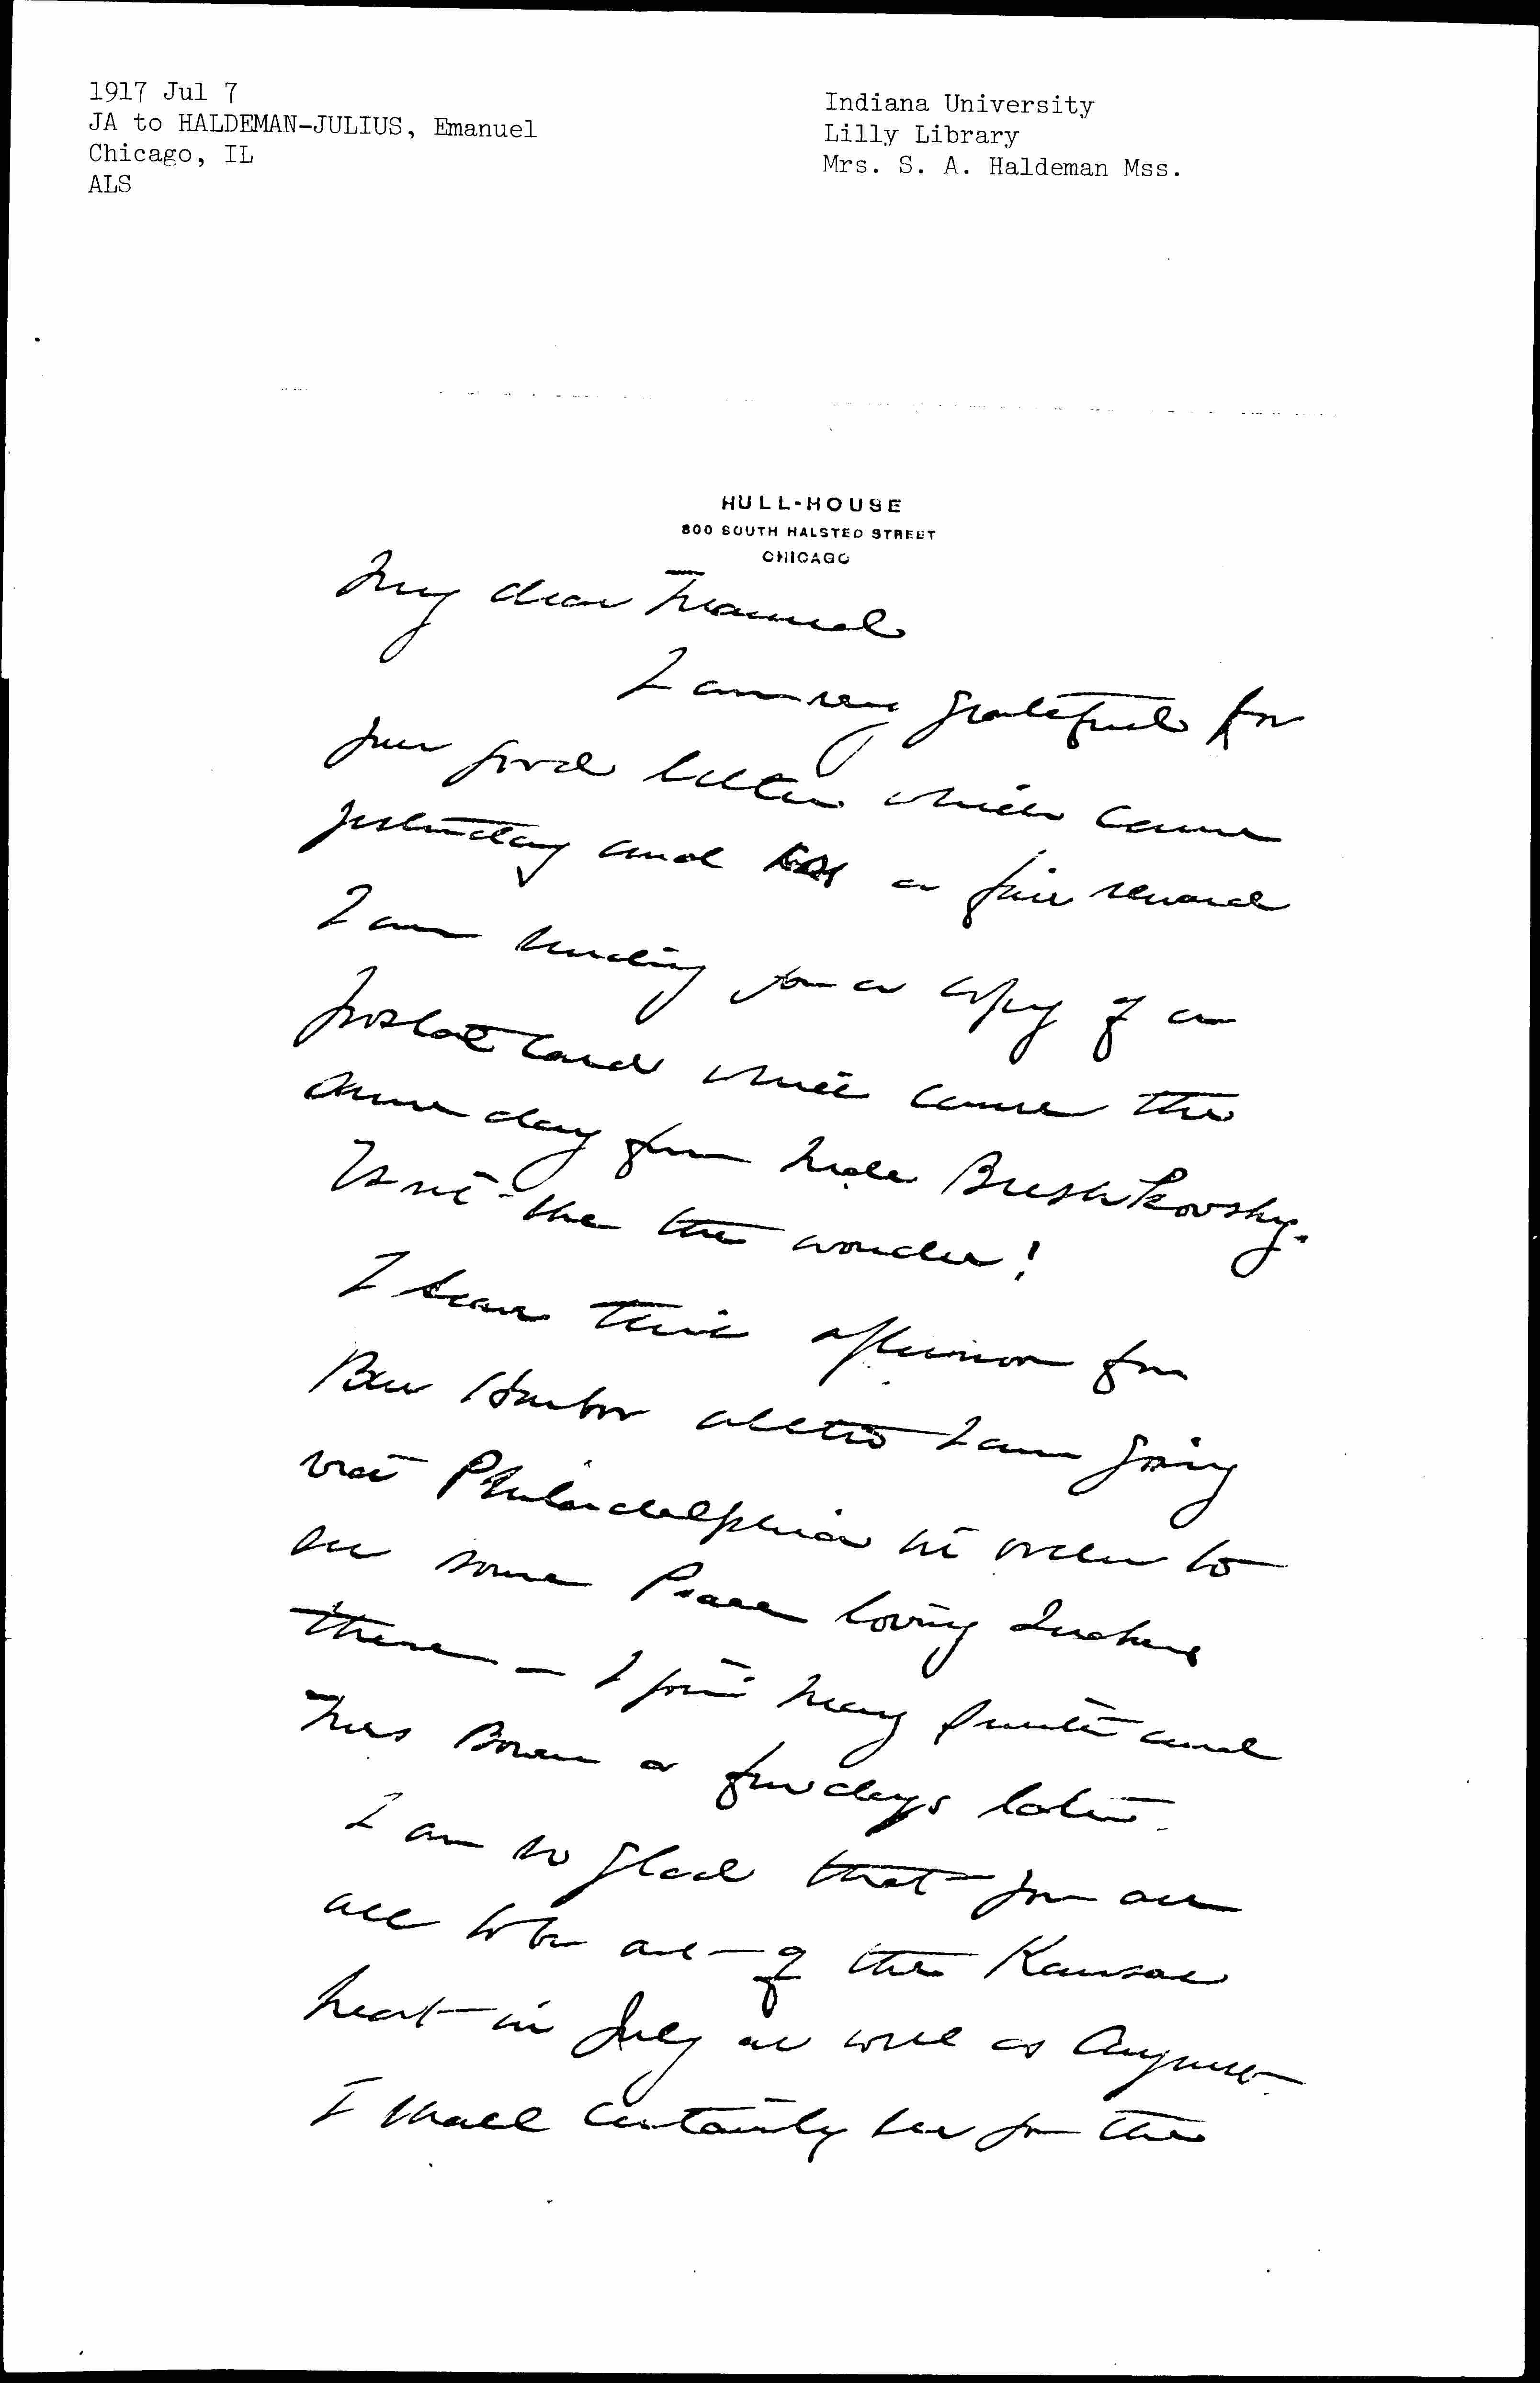 1917 Jul 7
JA to HALDEMAN-JULIUS, Emanuel
Chicago, IL
ALS
Indiana University
Lilly Library
Mrs. S. A. Haldeman Mss.
HULL-HOUSE
800 SOUTH HALSTED STREET
CHICAGO
My dear Manuel
I am very grateful for
your good letter which came
yesterday and as a fair reward
I am sending you a copy of a
postal card which came the
same day from Mde Breshkovsky.
Isn't she the wonder!
I leave this afternoon for
Bar Harbor altho I am going
via Philadelphia in order to
see some Peace loving Quakers
there — I join Mary Smith and
Mrs Bowen a few days later.
I am so glad that you are
all to be out of the Kansas
heat in July as well as August.
I shall certainly see you the